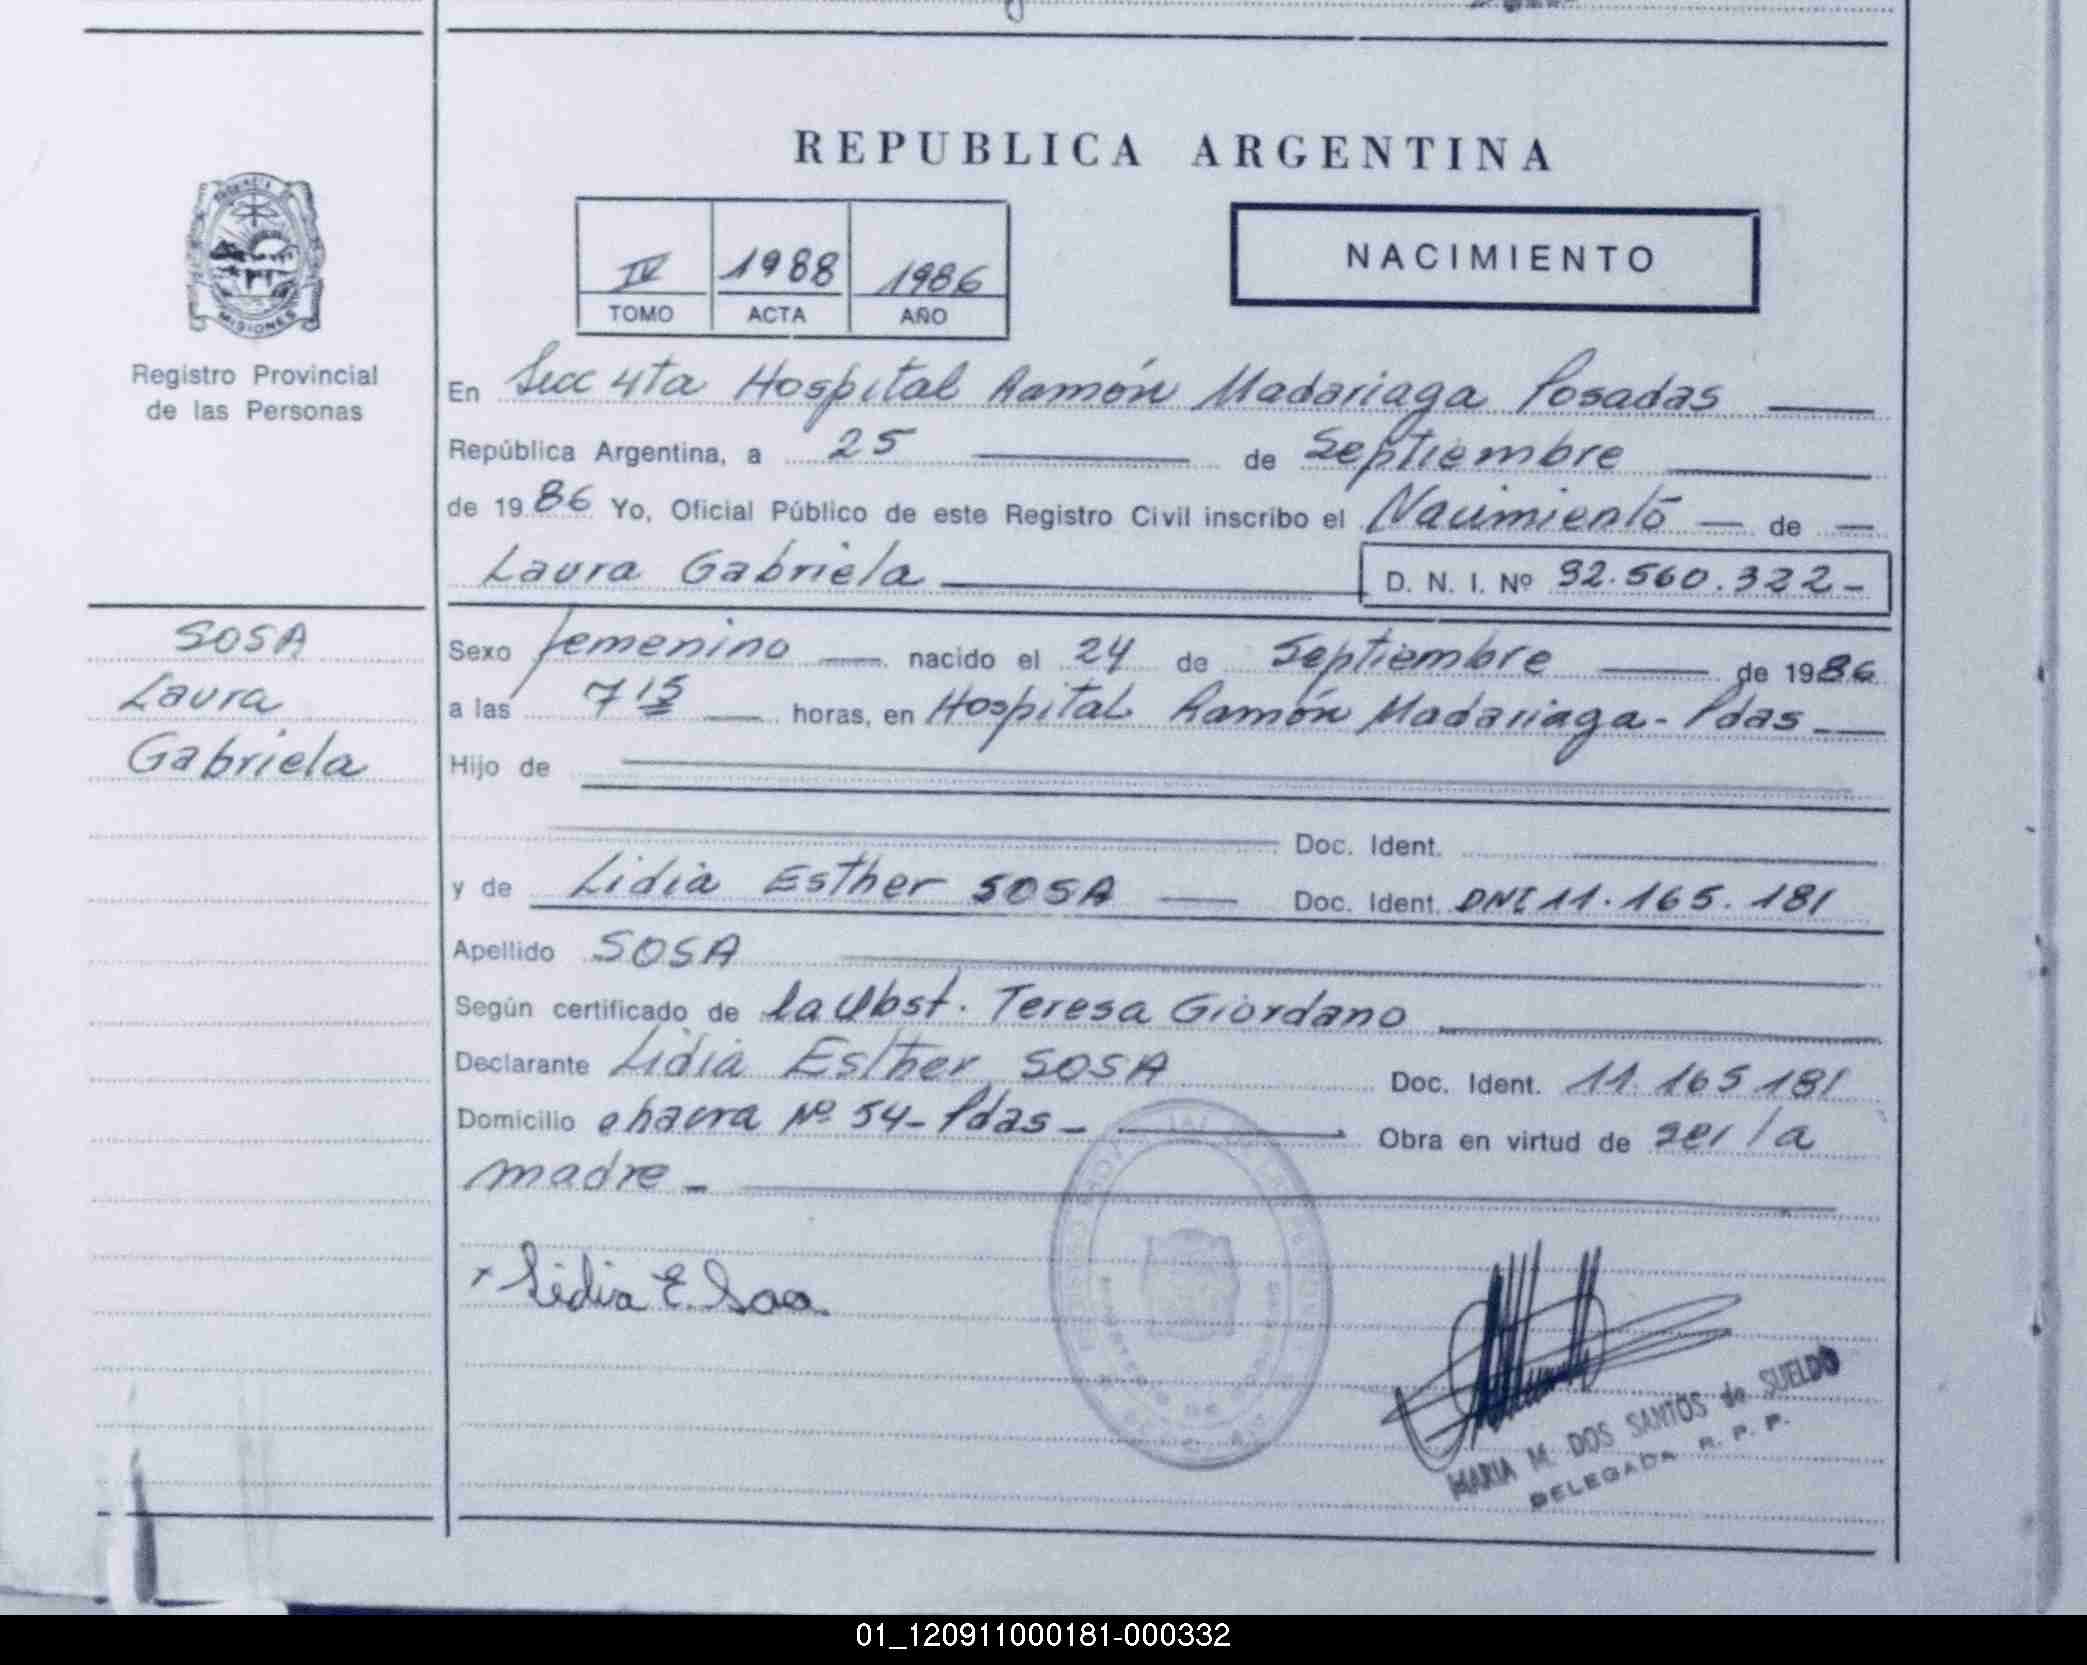 REPUBLICA ARGENTINA
MISIONES
Registro Provincial
de las Personas
IV 1988 1986
TOMO ACTA AÑO
NACIMIENTO
En Secc 4ta Hospital Ramón Madariaga Posadas
República Argentina, a 25 de Septiembre
de 1986 Yo, Oficial Público de este Registro Civil inscribo el Nacimiento de
Laura Gabriela D. N. I. Nº 92.560.322-
SOSA
Laura
Gabriela
Sexo femenino nacido el 24 de Septiembre de 1986
a las 7 15 horas, en Hospital Ramón Madariaga - Pdas
Hijo de
Doc. Ident.
y de Lidia Esther SOSA Doc. Ident. DNI 11.165.181
Apellido SOSA
Según certificado de la Obst. Teresa Giordano
Declarante Lidia Esther SOSA Doc. Ident. 11.165 181
Domicilio chacra Nº 54- Pdas - Obra en virtud de ser la
madre -
x Lidia E. Sosa
MARIA M. DOS SANTOS de SUELDO
DELEGADA R. P. P.
01_120911000181-000332